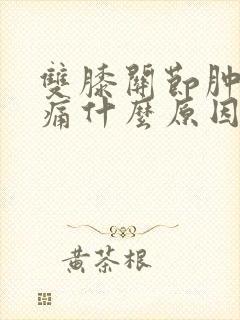 雙膝關節肿
痛什麼原因
黃荼根